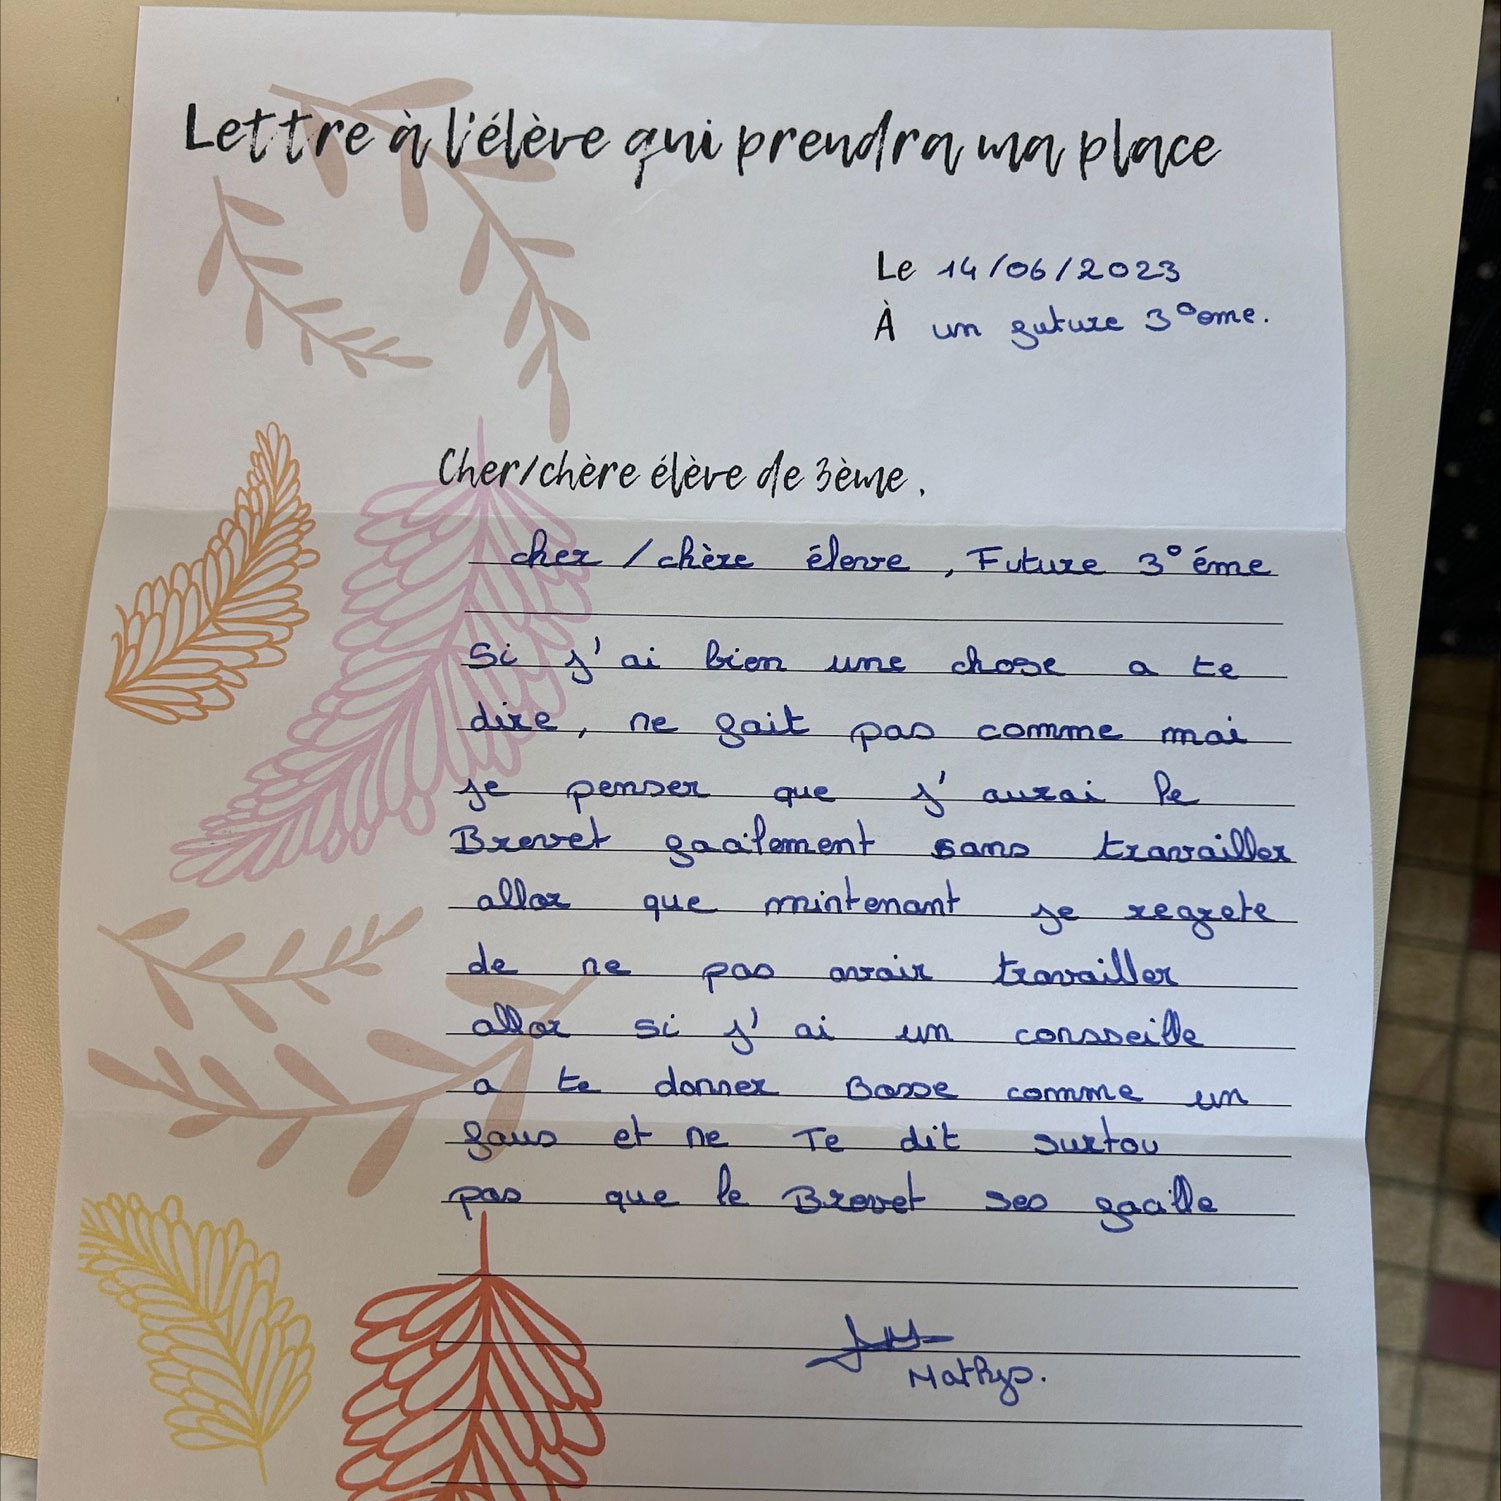 Lettre à l'élève qui prendra ma place
Le 14/06/2023
À un future 3°eme.
Cher/chère élève de 3ème,
cher / chère éleve, Future 3° éme
Si j'ai bien une chose a te
dire, ne fait pas comme moi
je penser que j'aurai le
Brevet facilement sans travailler
allor que mintenant je regrete
de ne pas avoir travailler
allor si j'ai un consseille
a te donner Bosse comme un
fous et ne Te dit surtou
pas que le Brevet ses facille
Mathys.